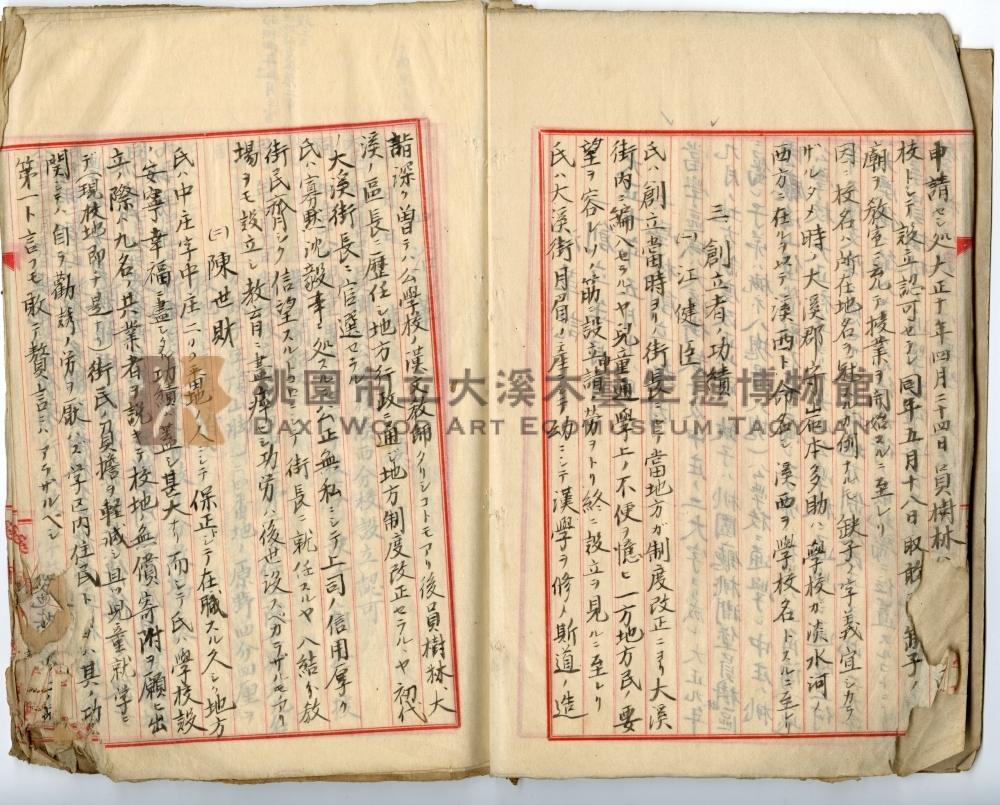 申請セシ処大正十年四月二十四日員樹林
校トシテ設立認可セラレ同年五月十八日取敢 缺子ノ
廟ヲ教室ニ充テ授業ヲ開始スルニ至レリ
因ニ校名ハ所在地名ヲ冠スル例ナルモ缺子ノ字義宜シカラ
ザルタメ時ノ大溪郡守山本多助ハ學校ガ淡水河ノ
西方ニ在ルヲ以テ溪西ト命名シ溪西ヲ學校名トスルニ至レリ
三、創立者ノ功績
㈠ 江健臣
氏ハ創立當時ヨリノ街長ニシテ當地方ガ制度改正ニヨリ大溪
街內ニ編入セラルヤ兒童通學上ノ不便ヲ憶ヒ一方地方民ノ要
望ヲ容レソノ筋ニ設立申請ノ勞ヲトリ終ニ設立ヲ見ルニ至レリ
氏ハ大溪街月眉ノ產ニシテ幼ニシテ漢學ヲ修メ斯道ノ造
詣深ク曾テハ公學校ノ漢文敎師タリシコトモアリ後員樹林大
溪區長ニ歷任シ地方行政ニ通ジ地方制度改正セラルヤ初代
ノ大溪街長ニ官選セラル
氏ハ寡默沈毅事ニ処スルヤ公正無私ニシテ上司ノ信用厚ク
街民齊シク信望スルトコロニシテ街長ニ就任スルヤ八結分敎
場ヲモ設立シ敎育ニ盡瘁セシ功勞ハ後世沒スベカラザルモノアリ
㈡ 陳世財
氏ハ中庄字中庄二 番地ノ人ニシテ保正トシテ在職スル久シク地方
ノ安寧幸福ニ盡シタル功績蓋シ甚大ナリ而シテ氏ハ學校設
立ノ際ハ九名ノ共業者ヲ説キテ校地無償寄附ヲ願ヒ出
デ(現校地即チ是ナリ)街民ノ負擔ヲ輕減シ且ツ兒童就学ニ
関シテハ自ラ勸誘ノ労ヲ厭ハズ学区內住民ト ハ其ノ功
第一ト言フモ敢テ贅言ニハアラザルベシ
桃園市立大溪木藝生態博物館
DAXI WOOD ART ECOMUSEUM TAOYUAN